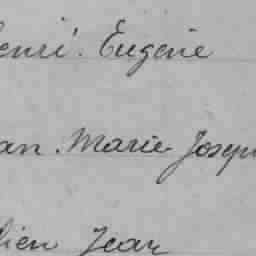 enri. Eugène
an. Marie Josep
lien Jean